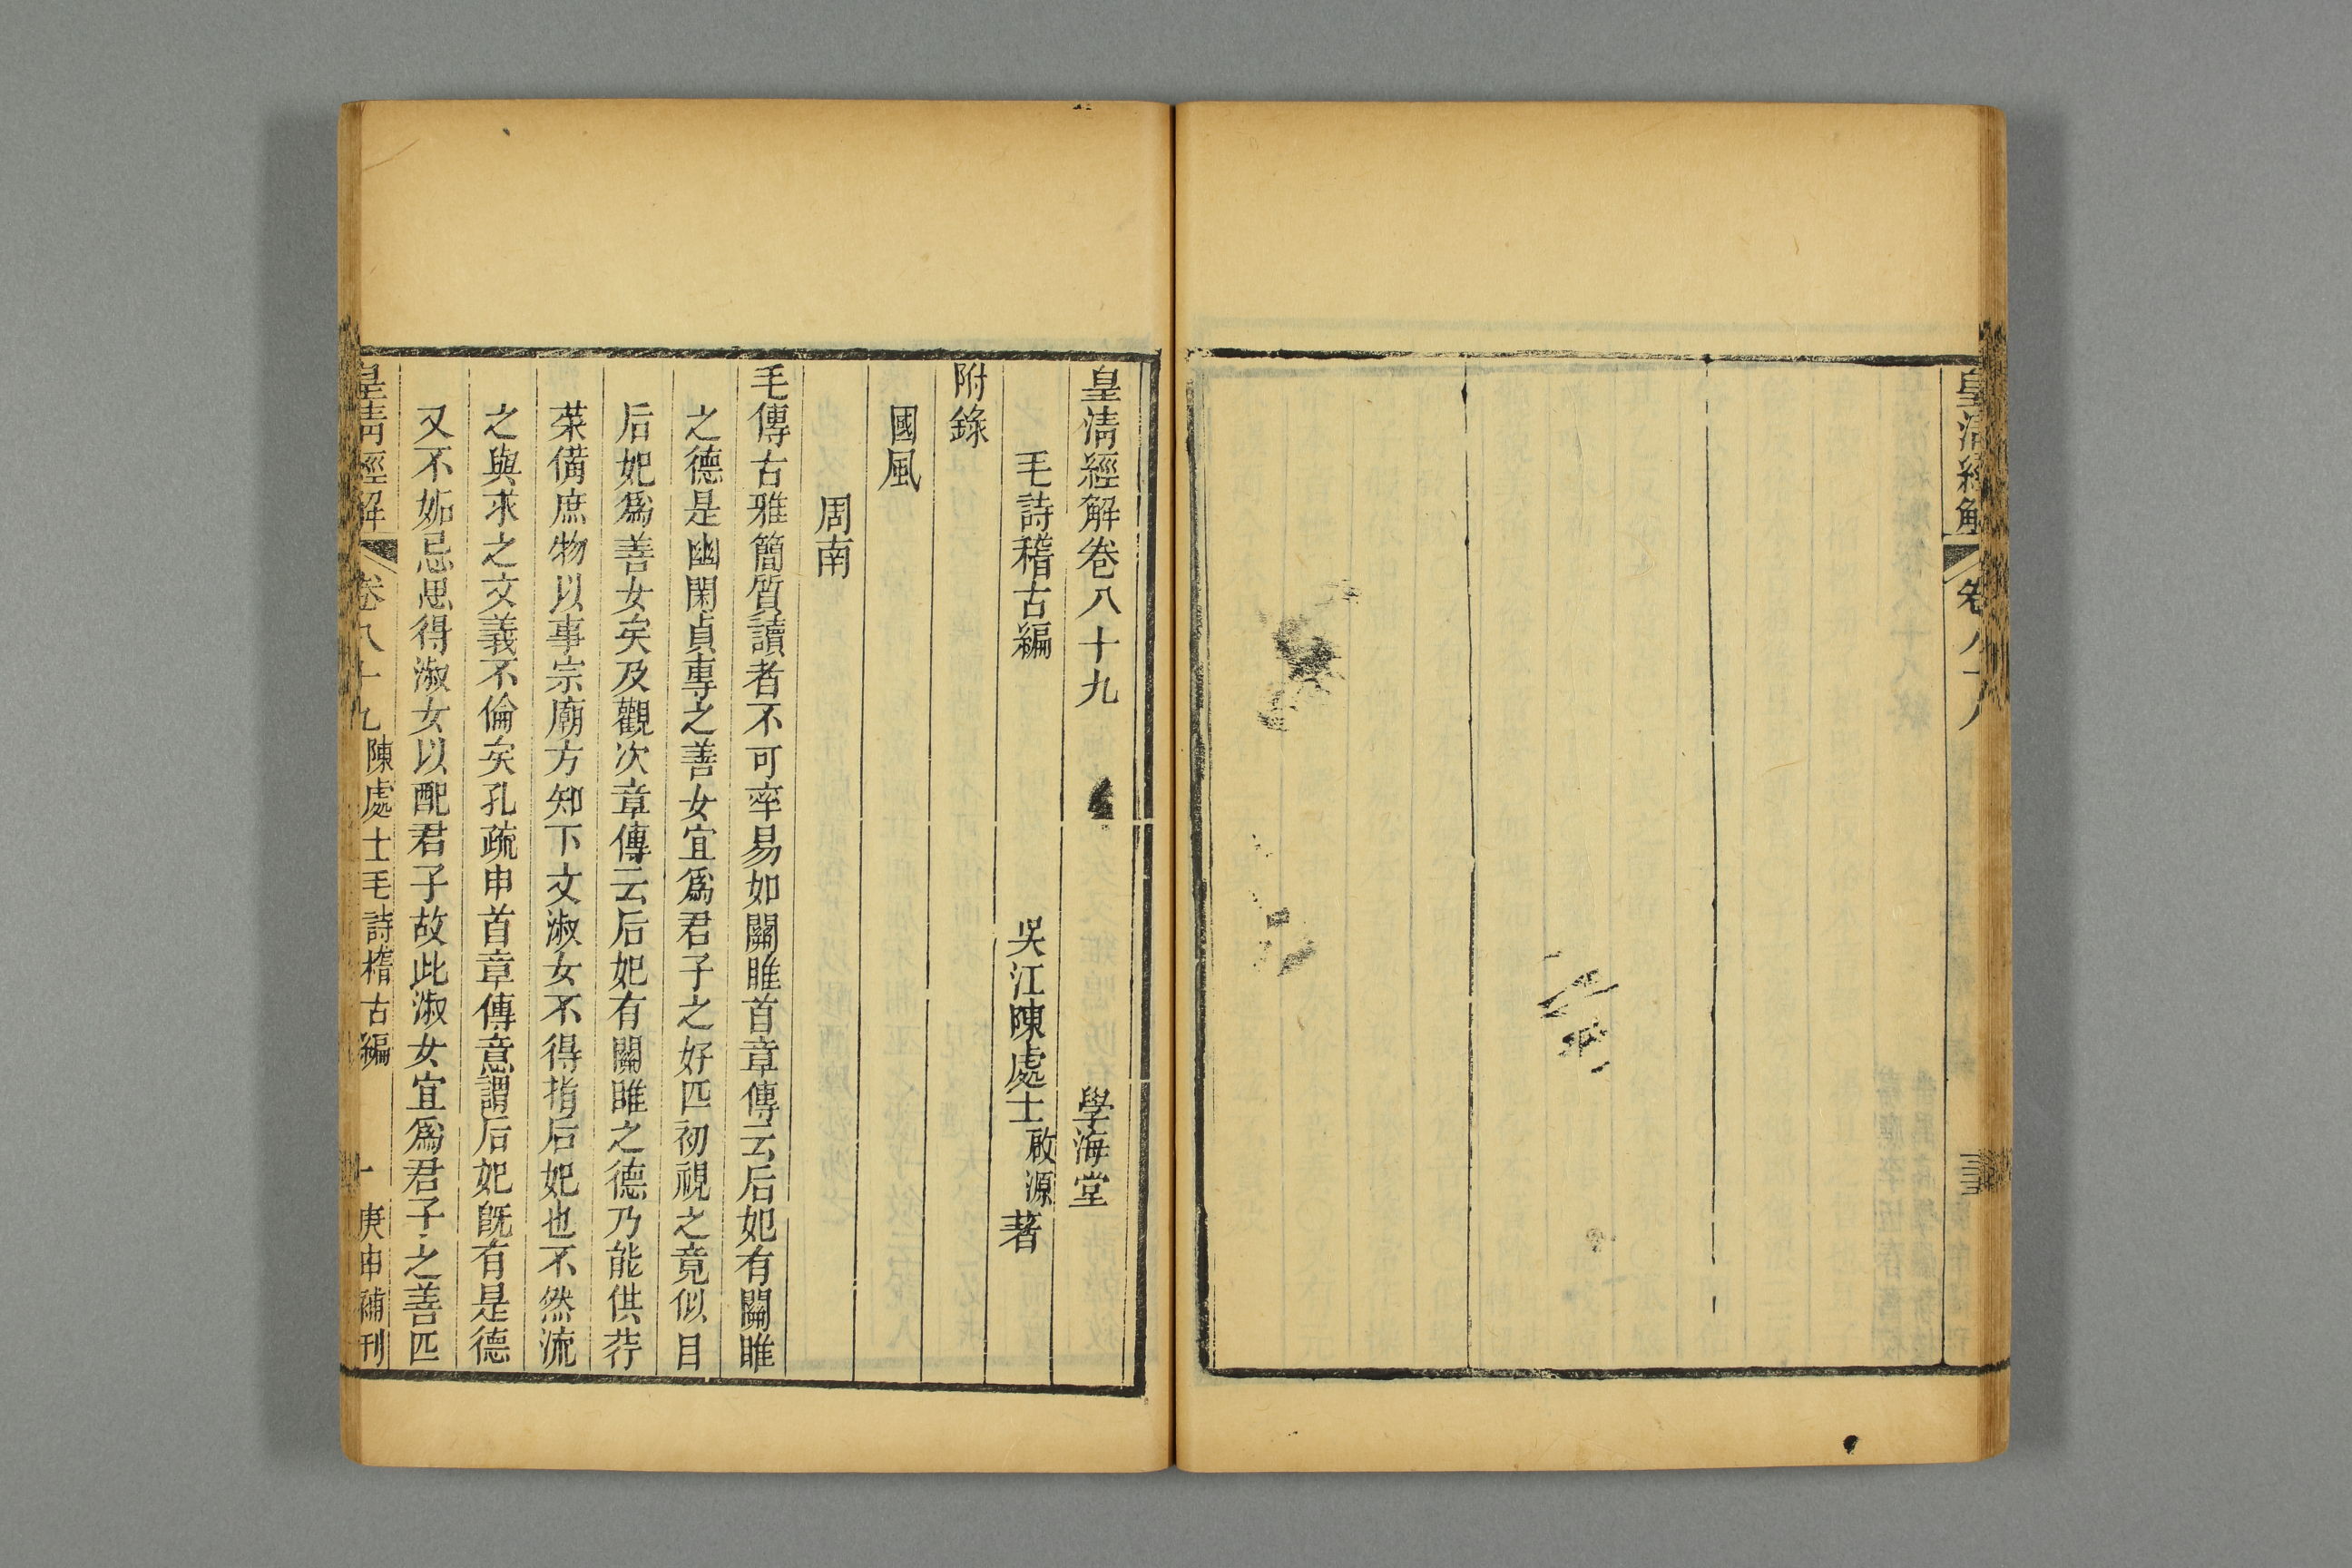 皇清經解
皇清經解卷八十九 學海堂
毛詩稽古編 吳江陳處士啟源著
附錄
國風
周南
毛傳古雅簡質讀者不可率易如關雎首章傳云后妃有關雎
之德是幽閑貞專之善女宜爲君子之好匹初視之竟似目
后妃爲善女矣及觀次章傳云后妃有關雎之德乃能供荇
菜備庶物以事宗廟方知下文淑女不得指后妃也不然流
之與求之文義不倫矣孔疏申首章傳意謂后妃旣有是德
又不妬忌思得淑女以配君子故此淑女宜爲君子之善匹
皇清經解 卷八十九 陳處士毛詩稽古編 一 庚申補刊